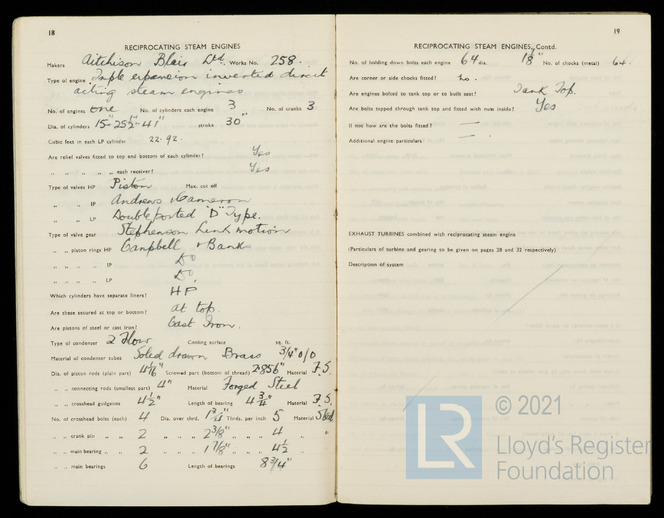 18
RECIPROCATING STEAM ENGINES
Makers Aitchison Blair Ltd. Works No. 258.
Type of engine Triple expansion inverted direct
acting steam engines
No. of engines one No. of cylinders each engine 3 No. of cranks 3
Dia. of cylinders 15"-25½"-41" stroke 30"
Cubic feet in each LP cylinder 22.92.
Are relief valves fitted to top and bottom of each cylinder? Yes
" " " " " each receiver? Yes
Type of valves HP Piston Max. cut off
" " IP Andrews & Cameron
" " LP Double ported "D" Type.
Type of valve gear Stephenson Link motion
" " piston rings HP Campbell & Banks
" " " IP Do
" " " LP Do.
Which cylinders have separate liners? HP
Are these secured at top or bottom? at top.
Are pistons of steel or cast iron? Cast Iron.
Type of condenser 2 Flow Cooling surface sq. ft.
Material of condenser tubes Solid drawn Brass 3/4" O/D
Dia. of piston rods (plain part) Screwed part (bottom of thread) 2.856" Material F.S.
" " connecting rods (smallest part) 4" Material Forged Steel
" " crosshead gudgeons 4½" Length of bearing 4¾" Material F.S.
No. of crosshead bolts (each) 4 Dia. over thrd. 1¾" Thrds. per inch 5 Material Steel
" " crank pin " " 2 " " " 2⅜" " " " 4 " "
" " main bearing " " 2 " " " 1⅞" " " " 4½ " "
" " main bearings 6 Length of bearings 8¾"
19
RECIPROCATING STEAM ENGINES, Contd.
No. of holding down bolts each engine 64 dia. 1⅛" No. of chocks (metal) 64.
Are corner or side chocks fitted? No.
Are engines bolted to tank top or to built seat? Tank Top.
Are bolts tapped through tank top and fitted with nuts inside? Yes
If not how are the bolts fitted? —
Additional engine particulars —
EXHAUST TURBINES combined with reciprocating steam engine
(Particulars of turbine and gearing to be given on pages 28 and 32 respectively)
Description of system
© 2021
LR
Lloyd's Register
Foundation